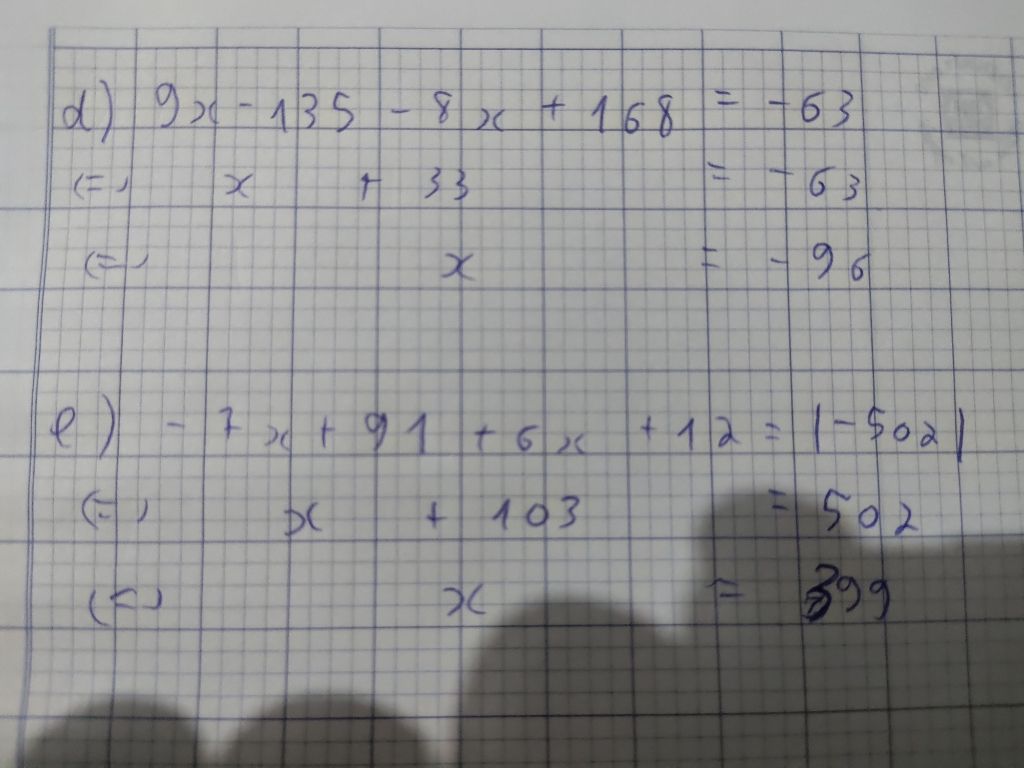 d) 9x - 135 - 8x + 168 = - 63
(=) x + 33 = - 63
(=) x = - 96
e) - 7x + 91 + 6x + 12 = |-502|
(=) x + 103 = 502
(=) x = 399